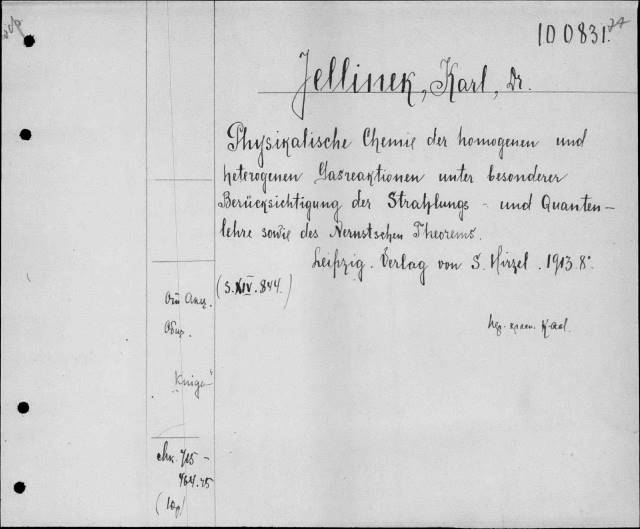 100831.
Jellinek, Karl, Dr.
Physikalische Chemie der homogenen und
heterogenen Gasreaktionen unter besonderer
Berücksichtigung der Strahlungs- und Quanten-
lehre sowie des Nernstschen Theorems.
Leipzig. Verlag von S. Hirzel. 1913. 8°.
(S. XIV. 844.)
„Kniga"